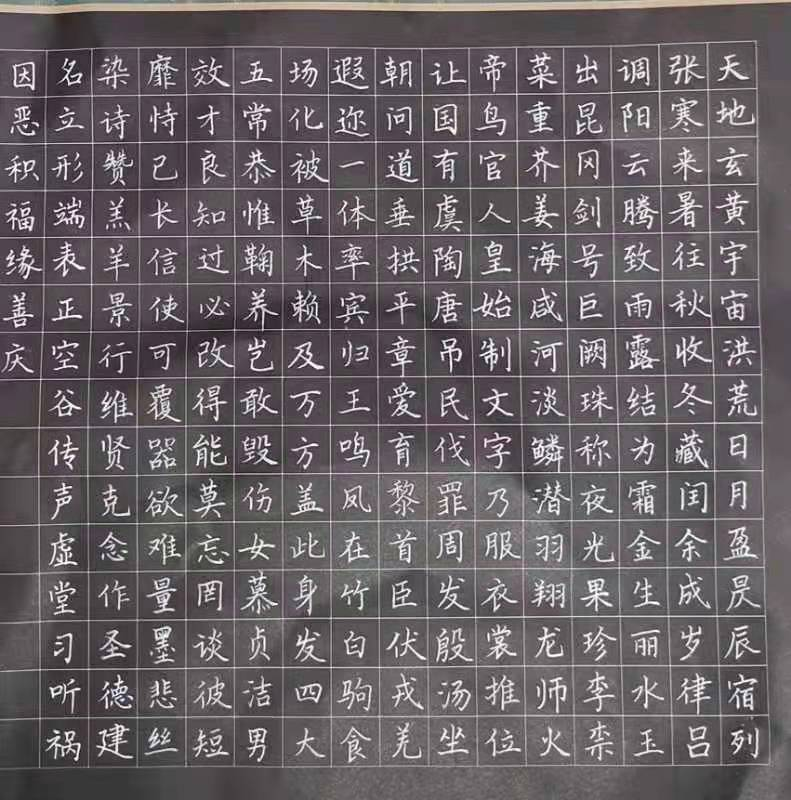 天地玄黄宇宙洪荒日月盈昃辰宿列
张寒来暑往秋收冬藏闰余成岁律吕
调阳云腾致雨露结为霜金生丽水玉
出昆冈剑号巨阙珠称夜光果珍李柰
菜重芥姜海咸河淡鳞潜羽翔龙师火
帝鸟官人皇始制文字乃服衣裳推位
让国有虞陶唐吊民伐罪周发殷汤坐
朝问道垂拱平章爱育黎首臣伏戎羌
遐迩一体率宾归王鸣凤在竹白驹食
场化被草木赖及万方盖此身发四大
五常恭惟鞠养岂敢毁伤女慕贞洁男
效才良知过必改得能莫忘罔谈彼短
靡恃己长信使可覆器欲难量墨悲丝
染诗赞羔羊景行维贤克念作圣德建
名立形端表正空谷传声虚堂习听祸
因恶积福缘善庆